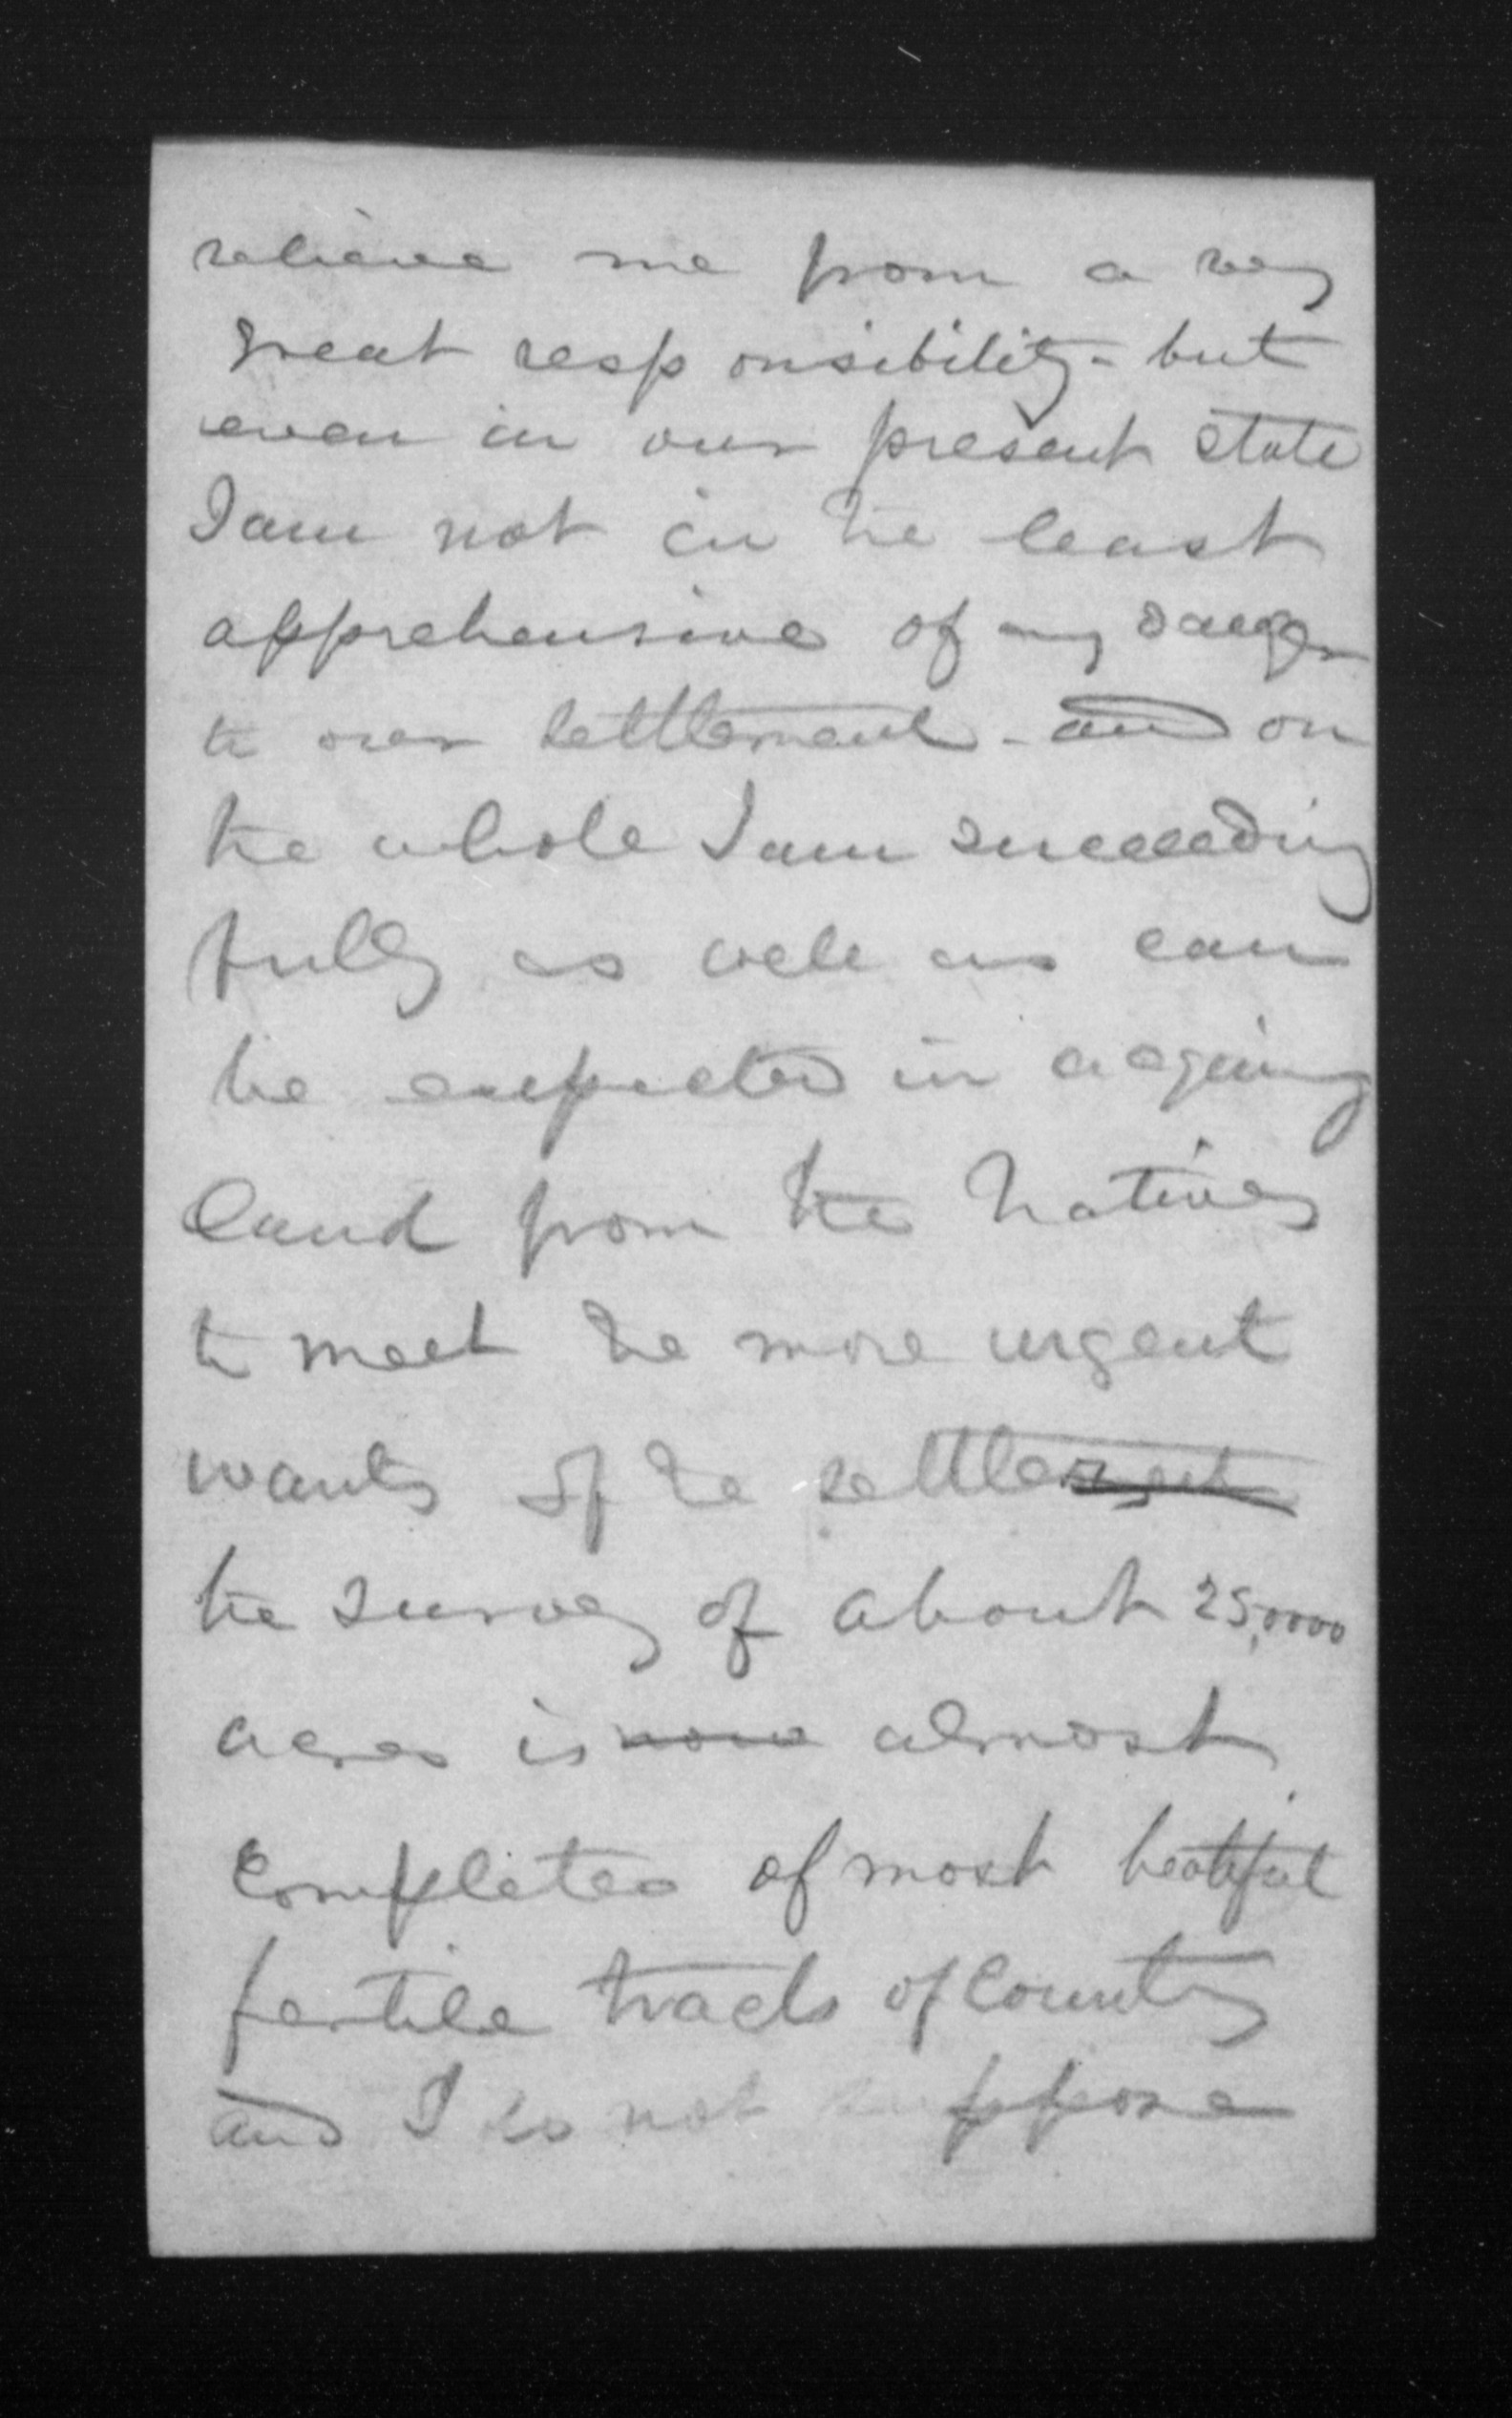 relieve me from a very
great responsibility - but
even in our present state
I am not in the least
apprehensive of any danger
to our settlement - and on
the whole I am succeeding
fully as well as can
be expected in acquiring
land from the Natives
to meet the more urgent
wants of the settlement
the survey of about 25,0000
acres is now almost
completed of most
fertile tracts of Country
and I do not suppose